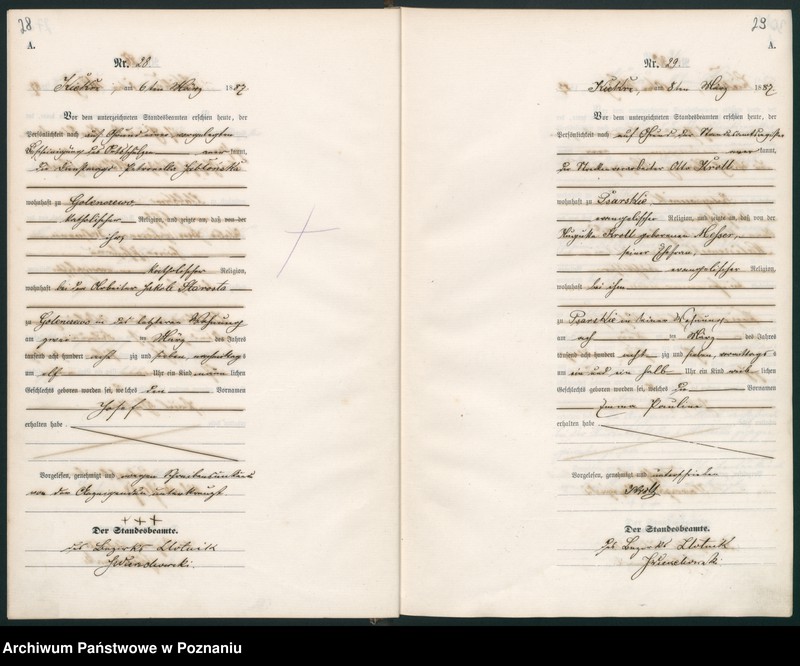 28
A.
Nr. 28.
Kiekrz, am 6ten März 1887
Vor dem unterzeichneten Standesbeamten erschien heute, der
Persönlichkeit nach auf Grund vorgelegten
Bescheinigung des kannt,
die Petronella
wohnhaft zu Golenczewo
katholischer Religion, und zeigte an, daß von der
ihr,
katholischer Religion,
wohnhaft bei dem Arbeiter Jakob Starosta
zu Golenczewo in des letzteren Wohnung
am zwei ten März des Jahres
tausend acht hundert acht zig und sieben, nachmittags
um elf Uhr ein Kind männ lichen
Geschlechts geboren worden sei, welches den Vornamen
Josef
erhalten habe
Vorgelesen, genehmigt und wegen Schreibensunkunde
von der Anzeigenden unterkreuzt
+++
Der Standesbeamte.
des Bezirks Zlotnik
29
A.
Nr. 29.
Kiekrz, am 8ten März 1887
Vor dem unterzeichneten Standesbeamten erschien heute, der
Persönlichkeit nach auf Grund der
kannt,
der Otto Kroll
wohnhaft zu Psarskie
evangelischer Religion, und zeigte an, daß von der
Auguste Kroll geborenen Messer,
seiner Ehefrau,
evangelischer Religion,
wohnhaft bei ihm
zu Psarskie in seiner Wohnung
am ach ten März des Jahres
tausend acht hundert acht zig und sieben, vormittags
um ein und ein halb Uhr ein Kind weib lichen
Geschlechts geboren worden sei, welches die Vornamen
Emma Pauline
erhalten habe
Vorgelesen, genehmigt und unterschrieben
Kroll
Der Standesbeamte.
des Bezirks Zlotnik
Archiwum Państwowe w Poznaniu